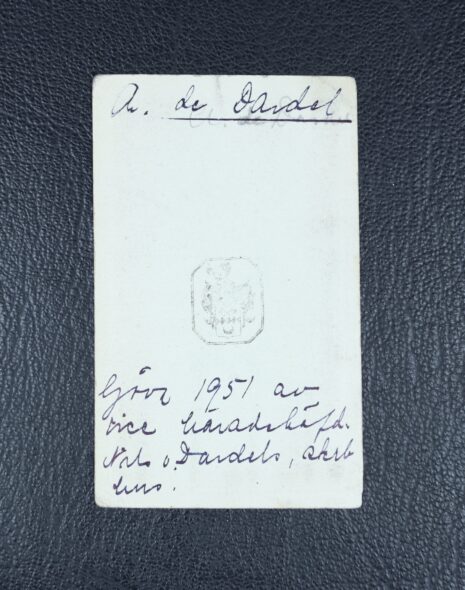 de Dardel
Gåva 1951 av
vice häradshöfd.
Nils v. Dardels, sterb
hus.